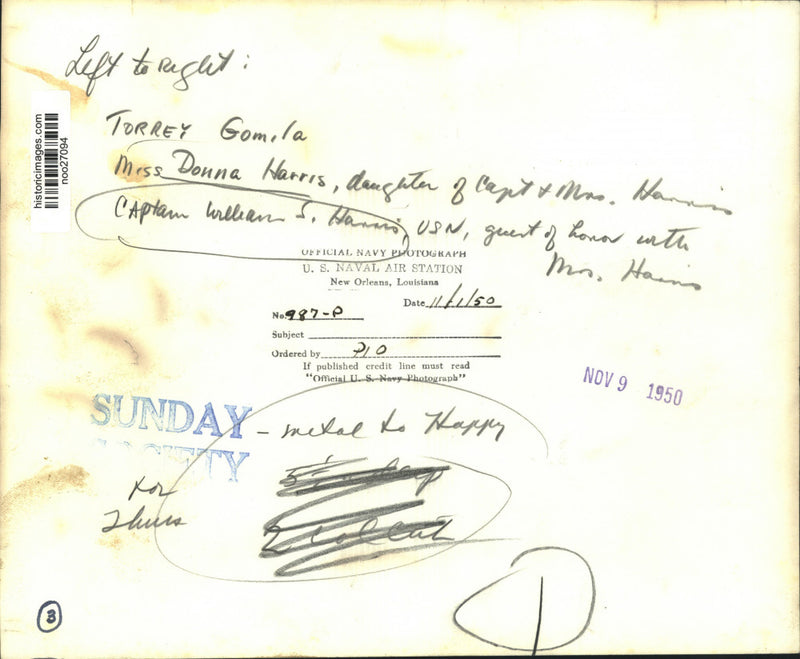 Left to Right:
historicimages.com
noo27094
TORREY Gomila
Miss Donna Harris, daughter of Capt & Mrs. Harris
CAPtain William S. Harris, USN, guest of honor with
Mrs. Harris
OFFICIAL NAVY PHOTOGRAPH
U. S. NAVAL AIR STATION
New Orleans, Louisiana
No. 987-P Date 11/1/50
Subject
Ordered by PIO
If published credit line must read
"Official U. S. Navy Photograph"
NOV 9 1950
SUNDAY
SOCIETY
- metal to Happy
for
Thurs
2 col cut
3